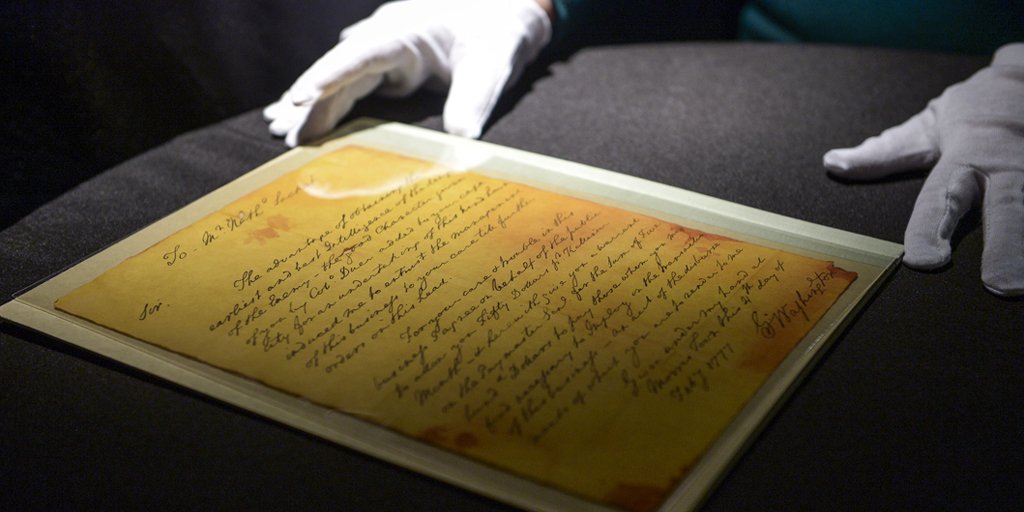 To - Mr Nathl Sackett
Sir.
The advantage of obtaining the
earliest and best Intelligence of the designs
of the Enemy - the good Character given
of you by Colo Duer added to your capa
city for an undertaking of this kind have
induced me to entrust the management
of this business to your care till further
orders on this head.
For your care & trouble in this
business I agree on behalf of the public
to allow you Fifty Dollars pr Kalendar
Month - & herewith give you a warrant
on the Paymaster Genl for the sum of Five
hund Dollars to pay those whom you may
find necessary to Imploy in the transaction
of this business - an acct of the disbursements
of which you are to render to me
Given under my hand at
Morris Town this 4th day of
Feby 1777
Go Washington